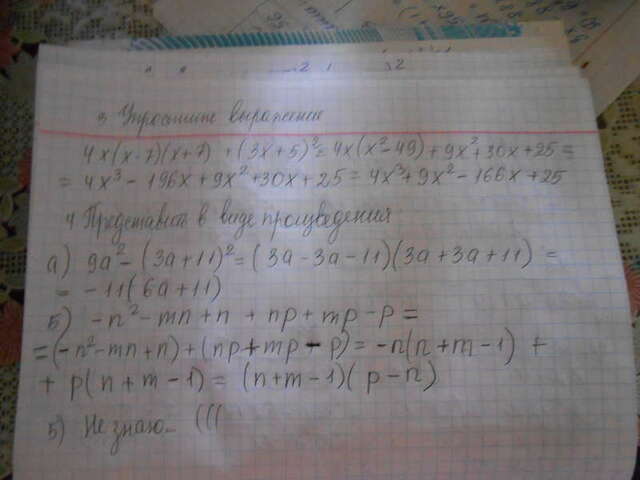 3. Упростите выражение
4x(x-7)(x+7) + (3x+5)² = 4x(x²-49) + 9x² + 30x + 25 =
= 4x³ - 196x + 9x² + 30x + 25 = 4x³ + 9x² - 166x + 25
4. Представить в виде произведения
а) 9a² - (3a+11)² = (3a-3a-11)(3a+3a+11) =
= -11(6a+11)
Б) -n² - mn + n + np + mp - p =
= (-n² - mn + n) + (np + mp - p) = -n(n+m-1) +
+ p(n+m-1) = (n+m-1)(p-n)
5) Не знаю... (((